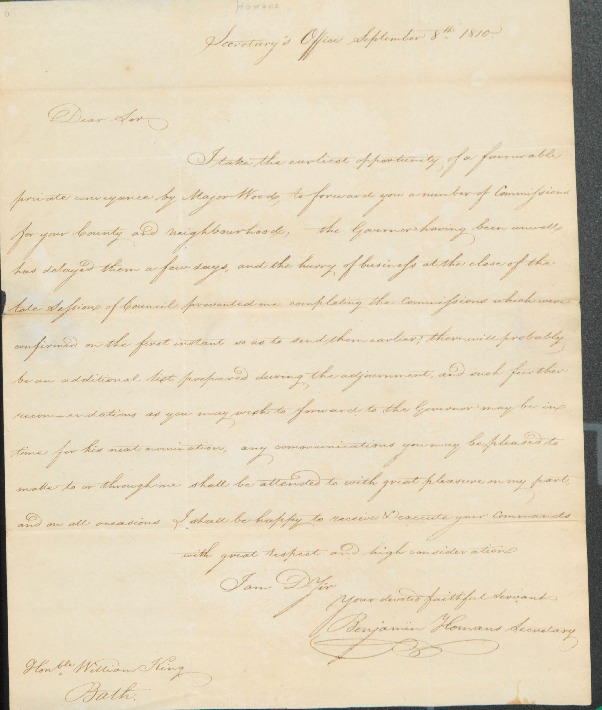 Homans
Secretary's Office September 8th 1810
Dear Sir
I take the earliest opportunity, of a favourable
private conveyance by Major Wood, to forward you a number of Commissions
for your County and neighbourhood, the Governor having been unwell
has delayed them a few days, and the hurry of business at the close of the
late Session of Council prevented me completing the Commissions which were
confirmed on the first instant so as to send them earlier; there will probably
be an additional list prepared during the adjournment, and such further
recommendations as you may wish to forward to the Governor may be in
time for his next nomination, any communications you may be pleased to
make to or through me shall be attended to with great pleasure on my part,
and on all occasions I shall be happy to receive & execute your Commands
with great respect and high consideration
I am D Sir
Your devoted faithful Servant
Benjamin Homans Secretary
Honble William King
Bath.